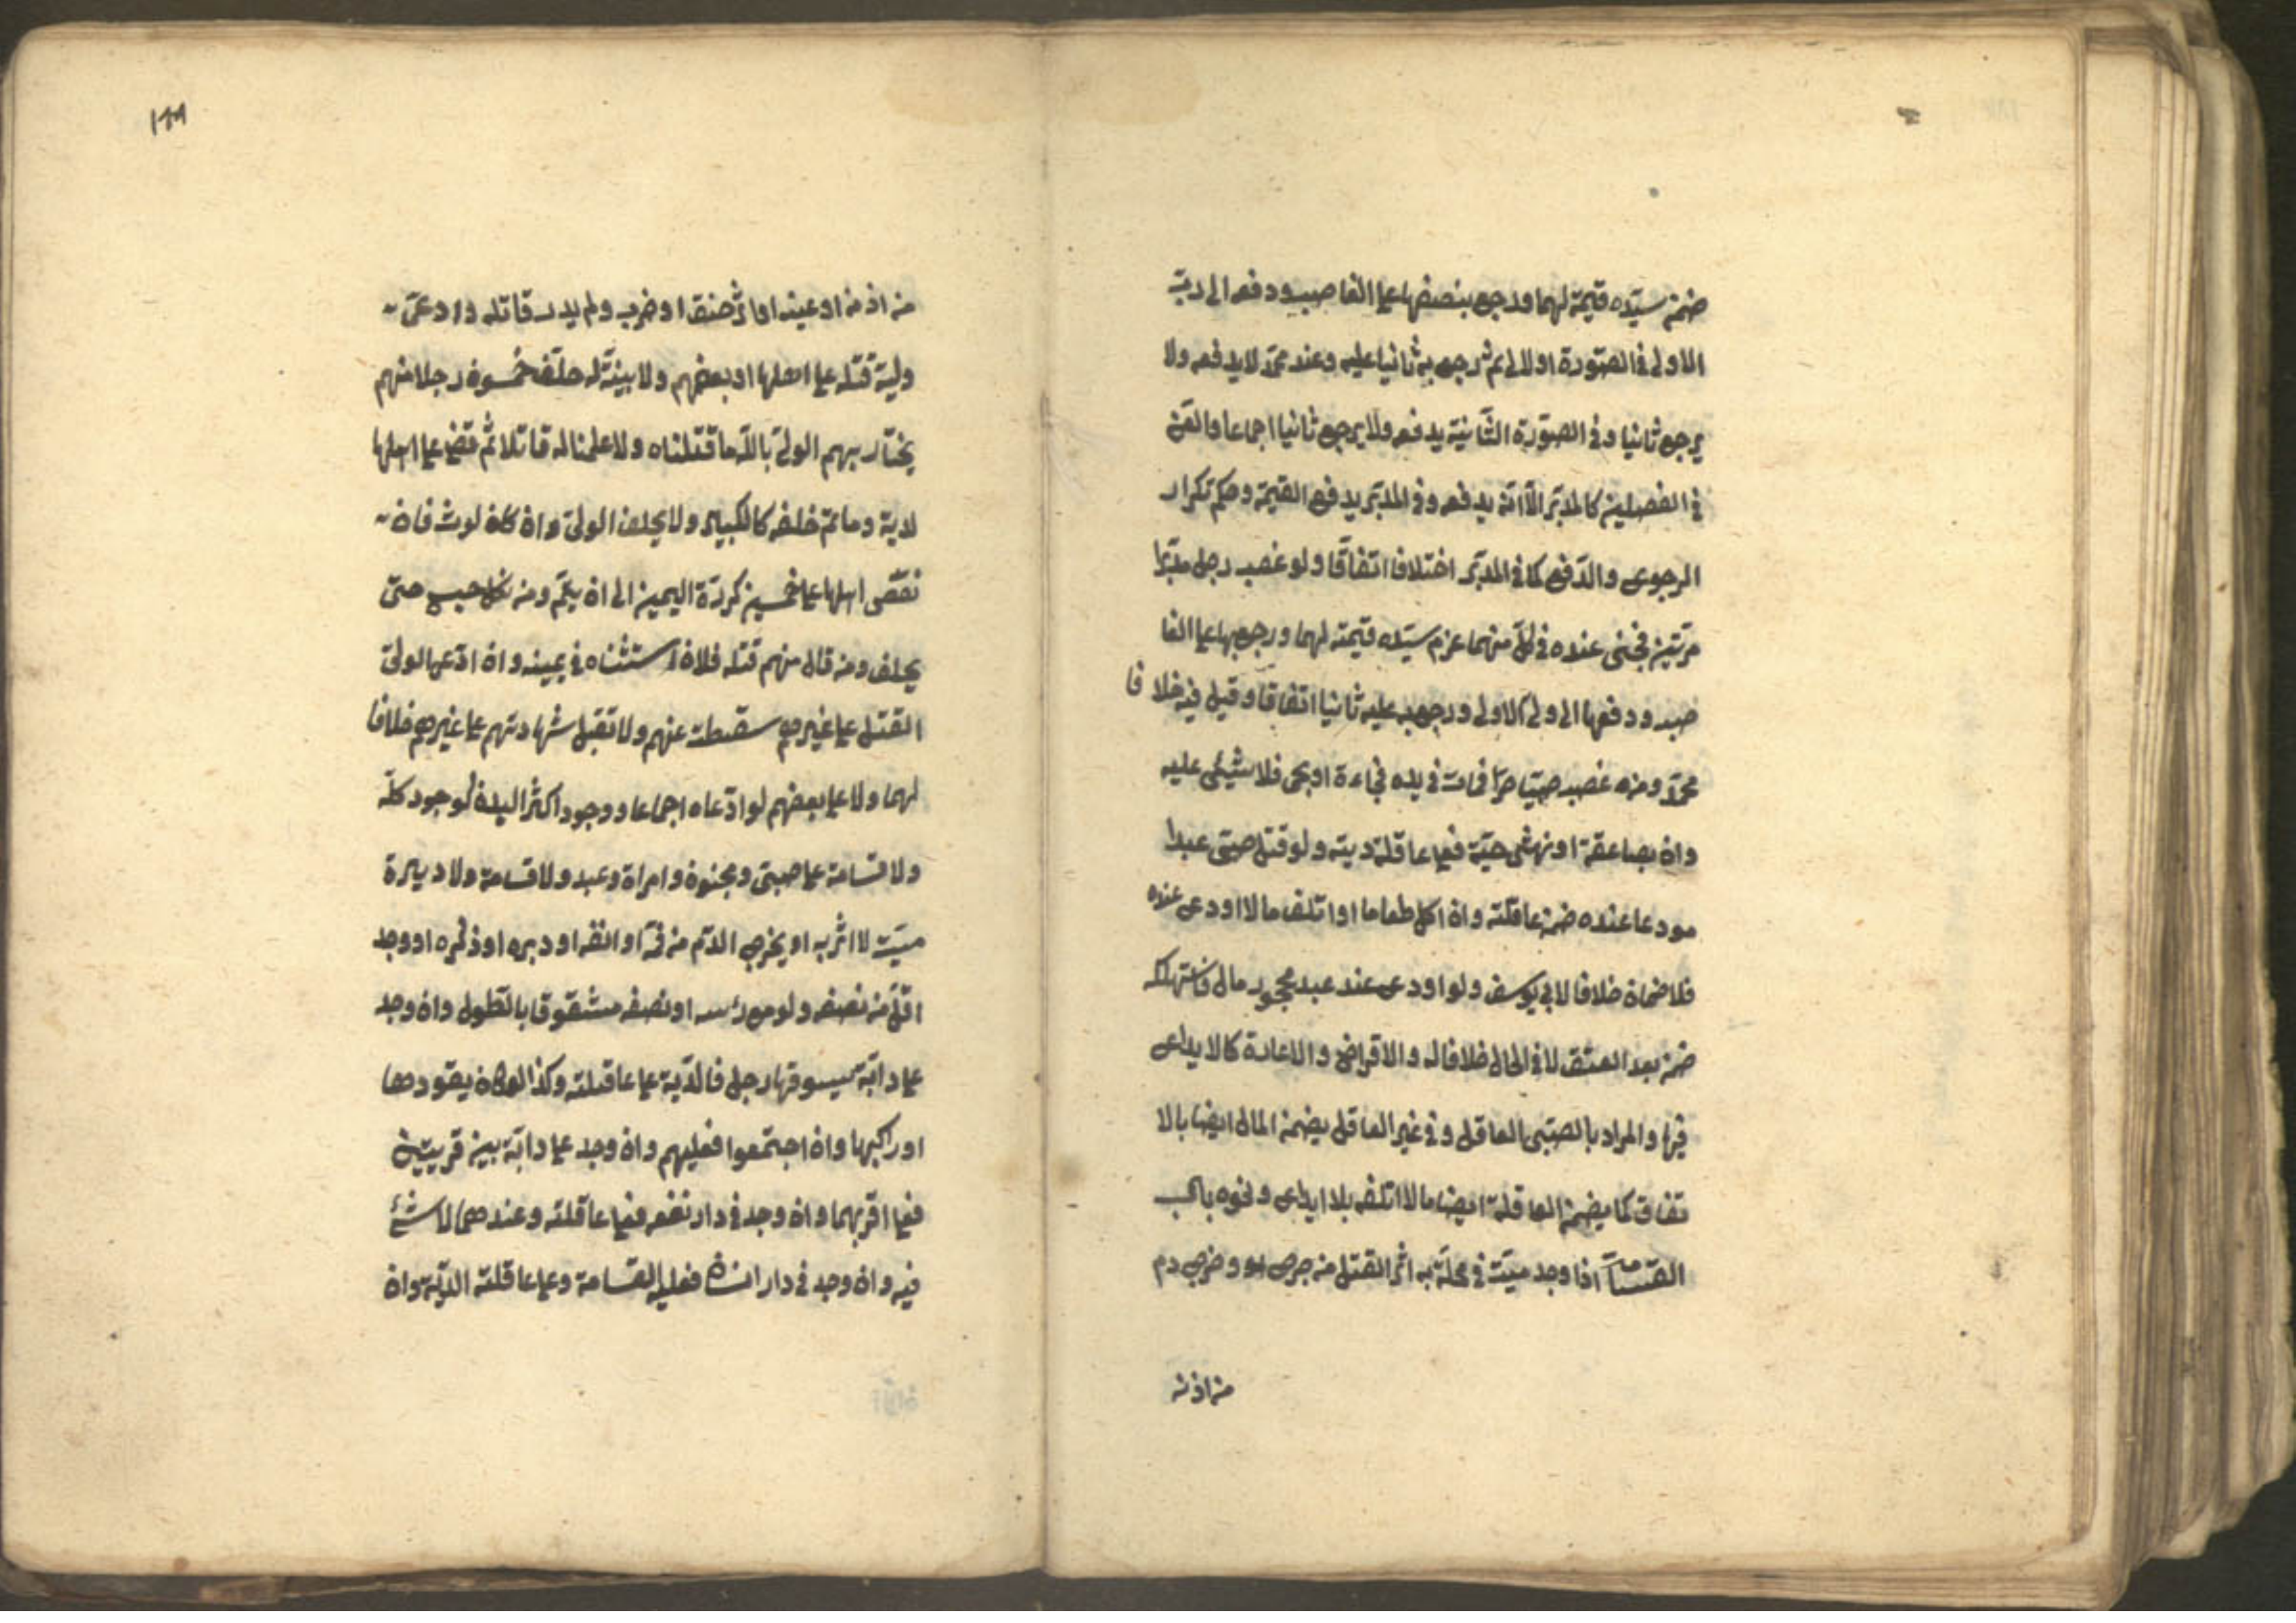 ضمن سيّده قيمة لهما ورجع بنصفها على الغاصب ودفعه الى ربّ
الاولى في الصّورة اولالى ثم رجع به ثانيا عليه وعند محمّد لا يدفعه ولا
يرجع ثانيا وفي الصورة الثّانية يدفعه ولا يرجع ثانيا اجماعا والقنّ
في الفصلين كالمدبّر الّا انّه يدفعه وفي المدبّر يدفع القيمة وحكم تكرار
الرجوع والدّفع كما في المدبّر اختلافا اتفاقا ولو غصب رجل مدبّرا
مرّتين فجنى عنده في كلّ منهما غرم سيّده قيمته لهما ورجع بها على الغا
صب ودفعها الى ولي الاولى ورجع به عليه ثانيا اتفاقا وقيل فيه خلافا
محمّد ومن غصب صبيّا حرّا فمات في يده فجاءة او بحمى فلا شيئى عليه
وان بصاعقة او نهش حيّة فعلى عاقلة ديته ولو قتل صبى عبدا
مودعا عنده ضمن عاقلته وان اكل طعاما او اتلف مالا اودع عنده
فلا ضمان خلافا لابي يوسف ولو اودع عند عبد محجور مال فاستهلكه
ضمن بعد العتق لا في الحال خلافا له والاقراض والاعارة كالايداع
فيها والمراد بالصبّى العاقل وفي غير العاقل يضمن المال ايضا بالا
تفاق كما يضمن العاقلة ايضا مالا اتلفه بلا ايداع ونحوه باب
القسامة اذا وجد ميت في محلّة به اثر القتل من جرح او وخرج دم
من اذنه
١٨٩
من اذنه او عينه او اثر خنق او ضرب ولم يدر قاتله وادعى
وليه قتله على اهلها او بعضهم ولا بينّة له حلف خمسون رجلا منهم
يختارهم الولىّ بالله ما قتلناه ولا علمنا له قاتلا ثم قضى على اهلها
لدية وما تم خلفه كالكبير ولا يحلف الولى وان كان لوث فان
نقص اهلها على خمسين كررّة اليمين الى ان يتمّ ومن نكل حبس حتى
يحلف ومن قال منهم قتله فلان استثناه في يمينه وان ادّعى الولىّ
القتل على غيرهم سقطت عنهم ولا تقبل شهادتهم على غيرهم خلافا
لهما ولا على بعضهم لو ادّعاه اجماعا ووجود اكثر البدن كوجود كلّه
ولا قسامة على صبىّ ومجنون وامراة وعبد ولا قسامة ولا دية في
ميت لا اثر به او يخرج الدّم من فمه او انفه او دبره او ذكره او وجد
اقلّ من نصفه ولو مع رأسه او نصفه مشقوقا بالطّول وان وجد
على دابّة يسوقها رجل فالدّية على عاقلته وكذا لو كان يقودها
او راكبها وان اجتمعوا فعليهم وان وجد على دابّة بين قريتين
فعلى اقربهما وان وجد في دار نفسه فعلى عاقلته وعندهما لا شئ
فيه وان وجد في دار انسان فعليه القسامة وعلى عاقلته الدّية وان